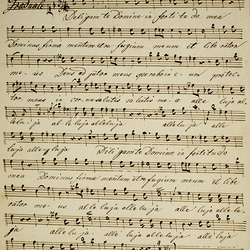 Graduale
Deligam te Domine in fortitudo mea
Dominus firma mentum et re fugium meum et liberator
me - us Deus ad jutor meus sperabo in e - um protec -
tor meus alleluja
alleluja alleluja alleluja
luja alleluja Deligam te Domine in fortitudo
mea Dominus firma mentum et re fugium meum et libe -
rator me - us al le luja alle lu ja alle luja alle lu -
ja alle lu ja alle luja alle
luja alle luja